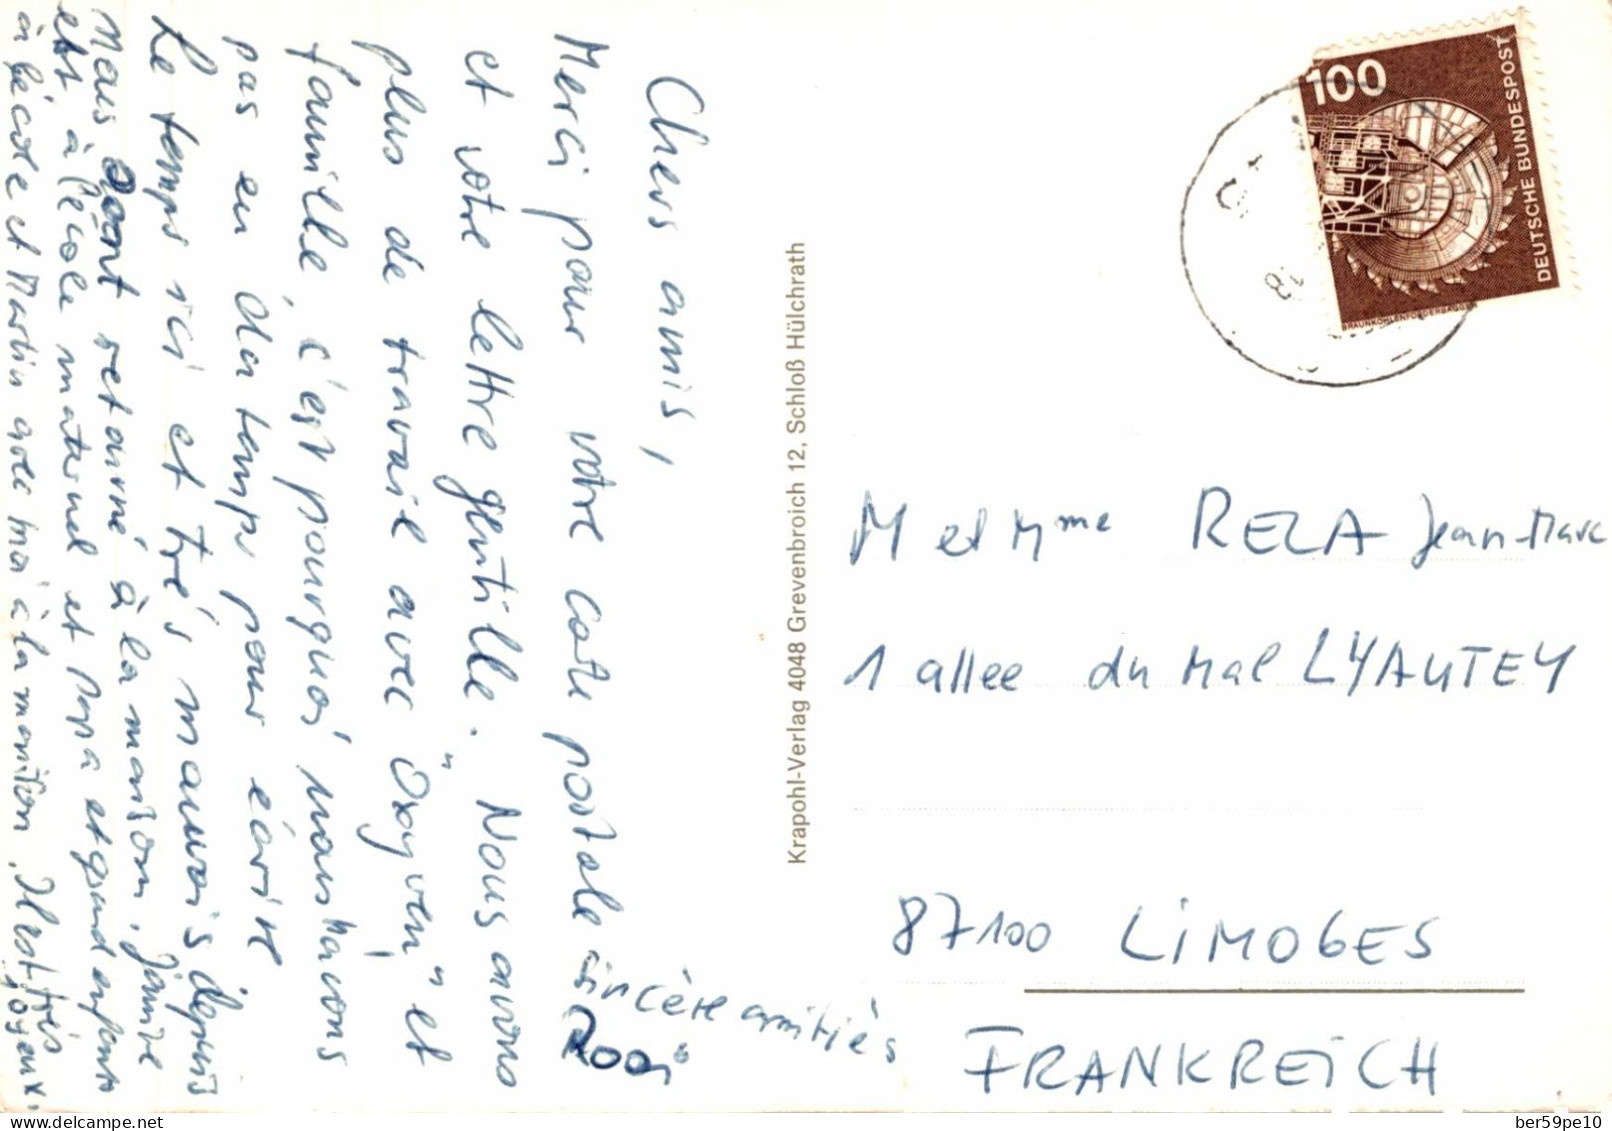 Chers amis,
Merci pour votre carte postale
et votre lettre gentille. Nous avons
plus de travail avec "Oxyven" et
famille, c'est pourquoi nous n'avons
pas eu du temps pour écrire
Le temps ici et très mauvais depuis
Mais sont retourné à la maison. Janire
est à l'école maternel et Papa et grand enfants
à l'école et Martin avec moi à la maison. Il est très
joyeux.
sincère amitiés
Rosi
Krapohl-Verlag 4048 Grevenbroich 12, Schloß Hülchrath
100
DEUTSCHE BUNDESPOST
BRAUNKOHLENFÖRDERBAGGER
M et Mme REZA Jean-Marc
1 allee du Mal LYAUTEY
87100 LIMOGES
FRANKREICH
delcampe.net
ber59pe10